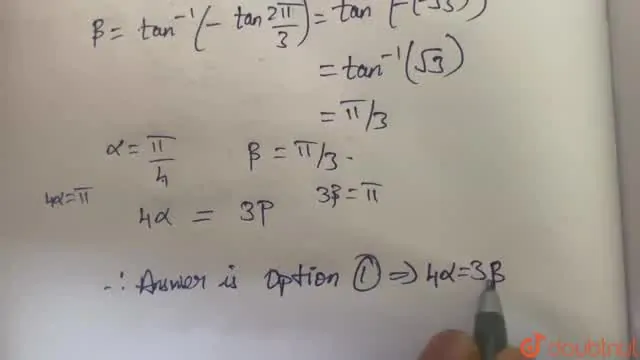 β = tan⁻¹(- tan 2π/3) = tan⁻¹(-(-√3))
= tan⁻¹(√3)
= π/3
α = π/4 β = π/3.
4α=π 3β = π
4α = 3β
∴ Answer is Option ① ⇒ 4α=3β
doubtnut